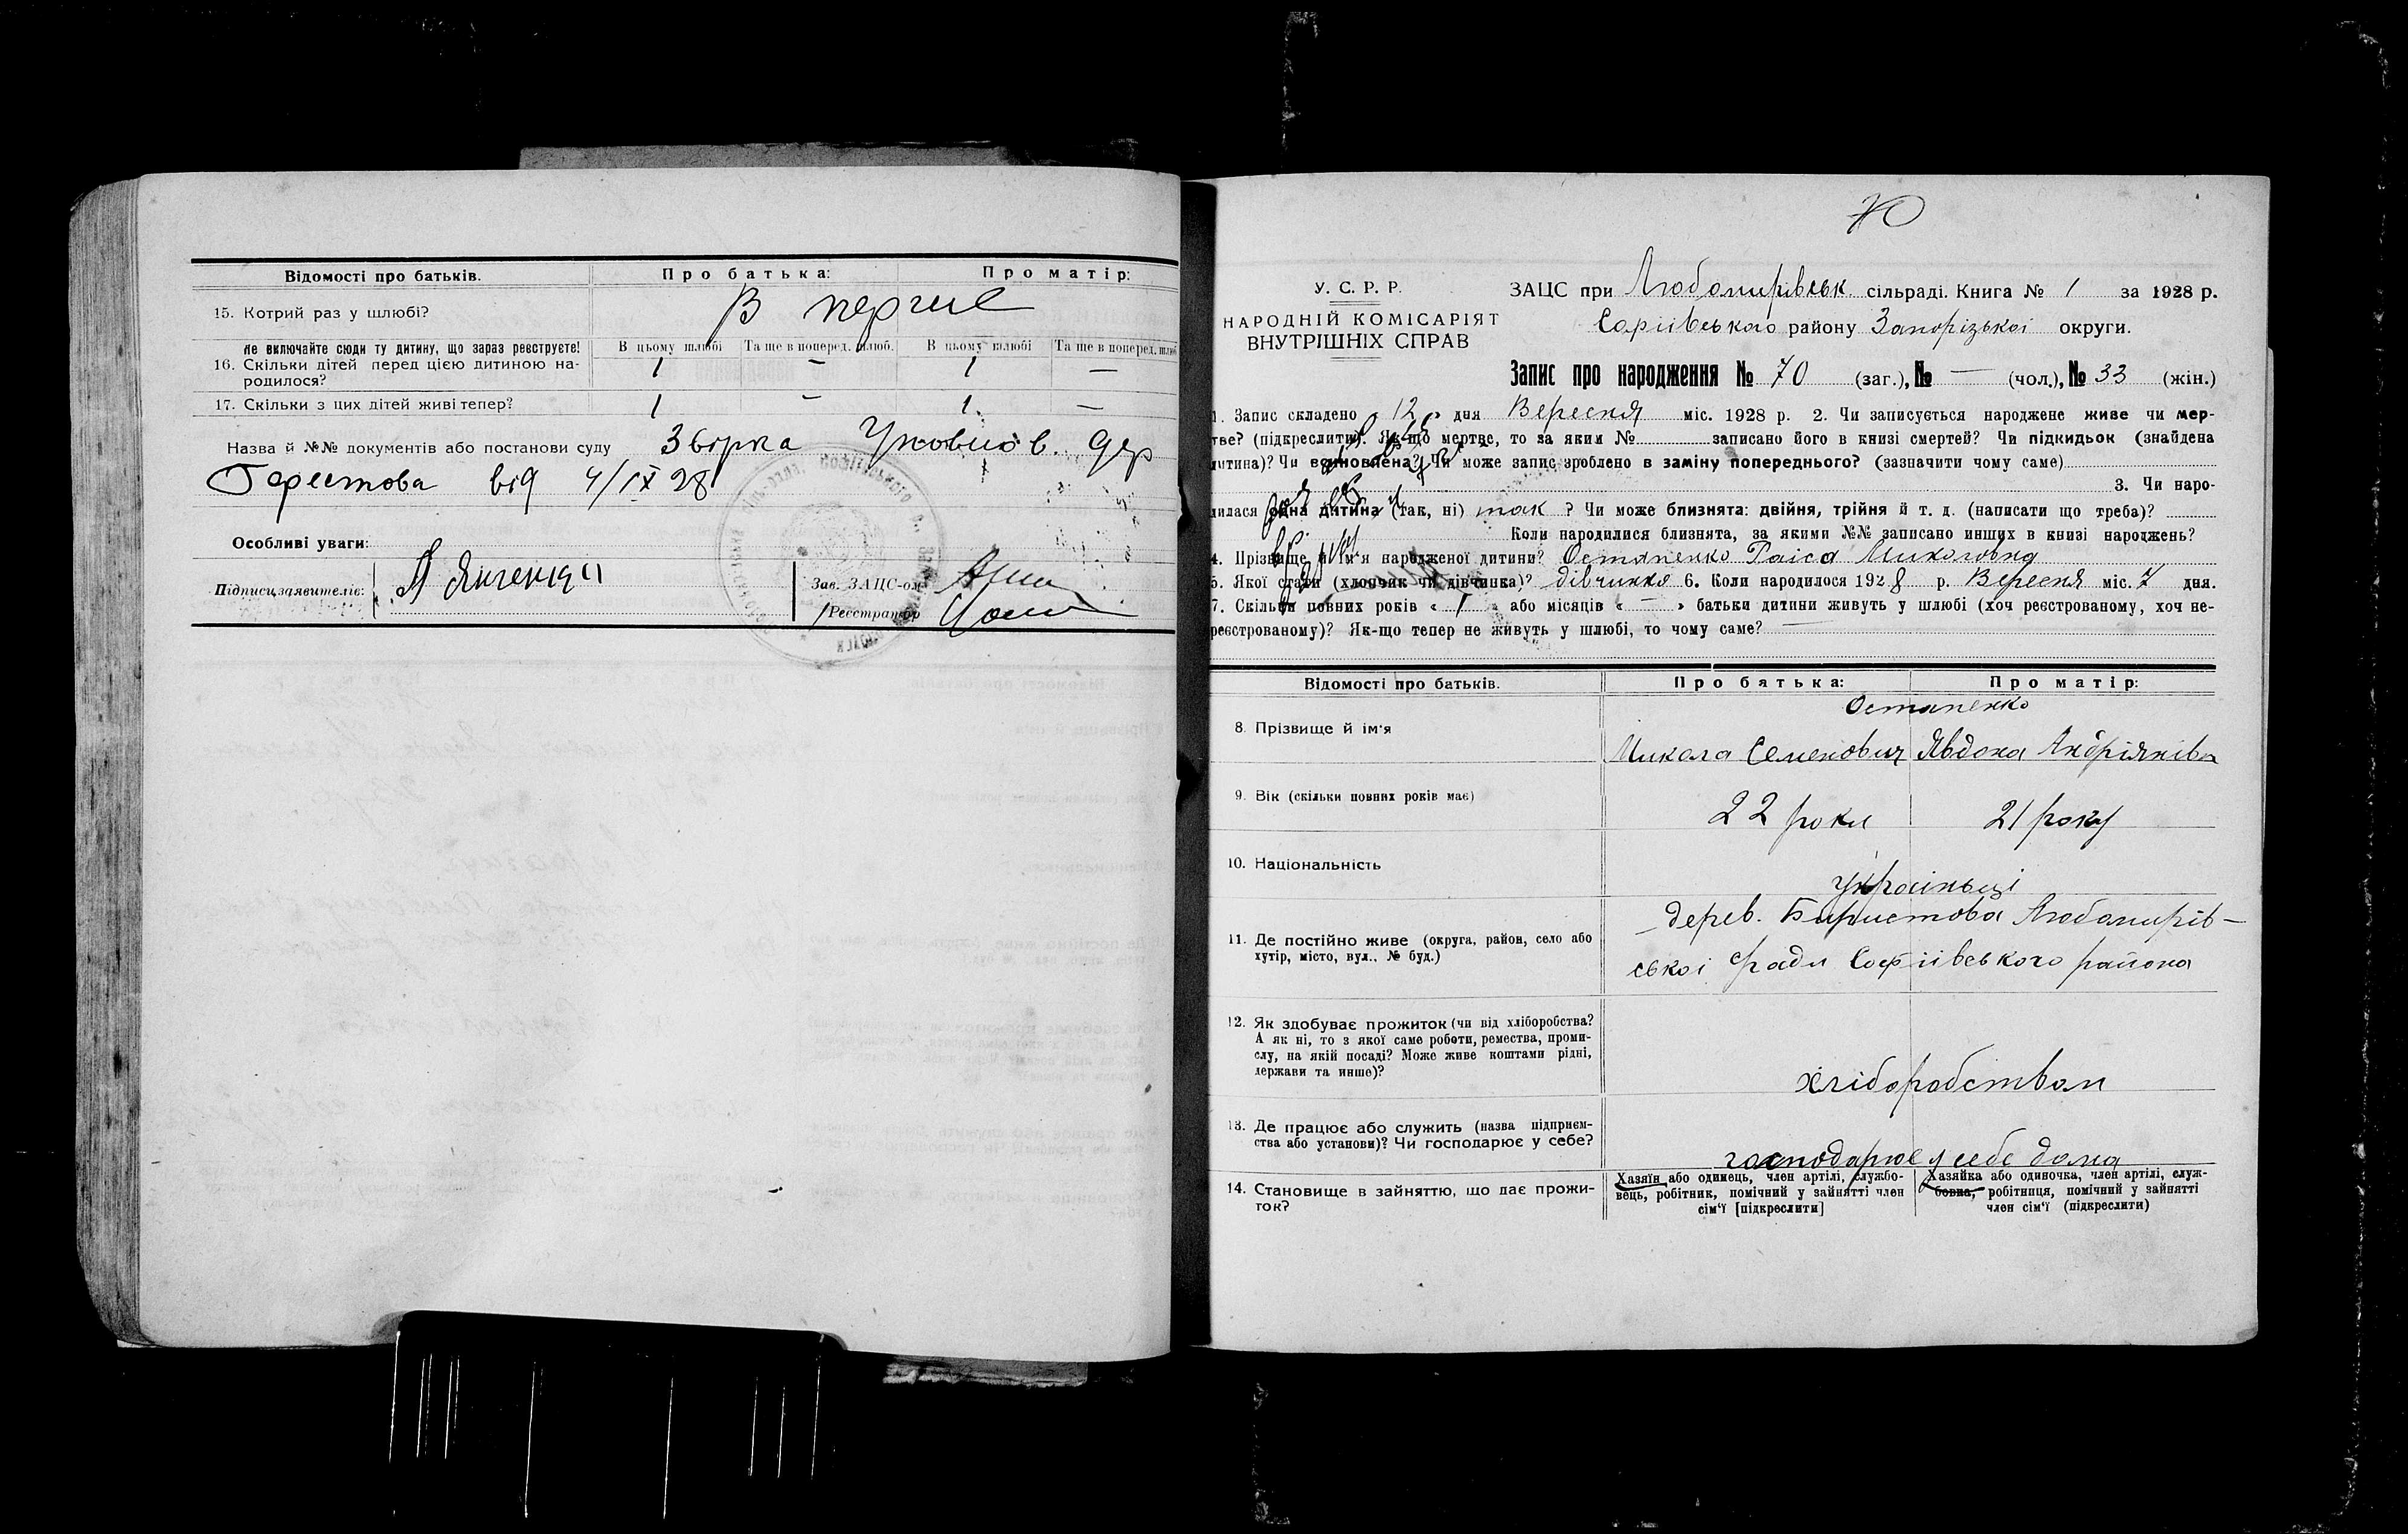 Відомості про батьків. Про батька: Про матір:
15. Котрий раз у шлюбі? В перше
Не включайте сюди ту дитину, що зараз реєструєте! В цьому шлюбі Та ще в поперед. шлюб. В цьому шлюбі Та ще в поперед. шлюб
16. Скільки дітей перед цією дитиною народилося? 1 – 1 –
17. Скільки з цих дітей живі тепер? 1 – 1 –
Назва й №№ документів або постанови суду Збірка Уповнов. дер
від 4/IX 28
Особливі уваги:
Підписи заявителів:
Зав. ЗАЦС-ом
Реєстратор
70
У. С. Р. Р.
НАРОДНІЙ КОМІСАРІЯТ
ВНУТРІШНІХ СПРАВ
ЗАЦС при Любомирівськ. сільраді. Книга № 1 за 1928 р.
Софіївського району Запорізької округи.
Запис про народження № 70 (заг.), № — (чол.), № 33 (жін.)
1. Запис складено „ 12 „ дня Вересня міс. 1928 р. 2. Чи записується народжене живе чи мер-
тве? (підкреслити). Як-що мертве, то за яким № записано його в книзі смертей? Чи підкидьок (знайдена
дитина)? Чи вдмовлена? Чи може запис зроблено в заміну попереднього? (зазначити чому саме)
3. Чи наро-
дилася одна дитина (так, ні) так ? Чи може близнята: двійня, трійня й т. д. (написати що треба)?
Коли народилися близнята, за якими №№ записано инших в книзі народжень?
4. Прізвище й ім'я народженої дитини? Остапенко Раіса Миколовна
5. Якої стати (хлопчик чи дівчинка)? дівчинка 6. Коли народилося 1928 р. Вересня міс. 7 дня.
7. Скільки повних років « 1 » або місяців « — » батьки дитини живуть у шлюбі (хоч реєстрованому, хоч не-
реєстрованому)? Як-що тепер не живуть у шлюбі, то чому саме? —
Відомості про батьків. Про батька: Про матір:
Остапенко
8. Прізвище й ім'я Микола Семенович Явдоха Андріянівна
9. Вік (скільки повних років має) 22 роки 21 року
10. Національність Україньці
11. Де постійно живе (округа, район, село або
хутір, місто, вул., № буд.)
дерев. Биристова Любомирів-
ської ради Софіївського района
12. Як здобуває прожиток (чи від хліборобства?
А як ні, то з якої саме роботи, ремества, проми-
слу, на якій посаді? Може живе коштами рідні,
держави та инше)?
хліборобством
13. Де працює або служить (назва підприєм-
ства або установи)? Чи господарює у себе?
господарює у себе дома
14. Становище в зайняттю, що дає прожи-
ток?
Хазяїн або одинець, член артілі, службо-
вець, робітник, помічний у зайнятті член
сім'ї [підкреслити]
Хазяйка або одиночка, член артілі, служ-
бовна, робітниця, помічний у зайнятті
член сім'ї (підкреслити)